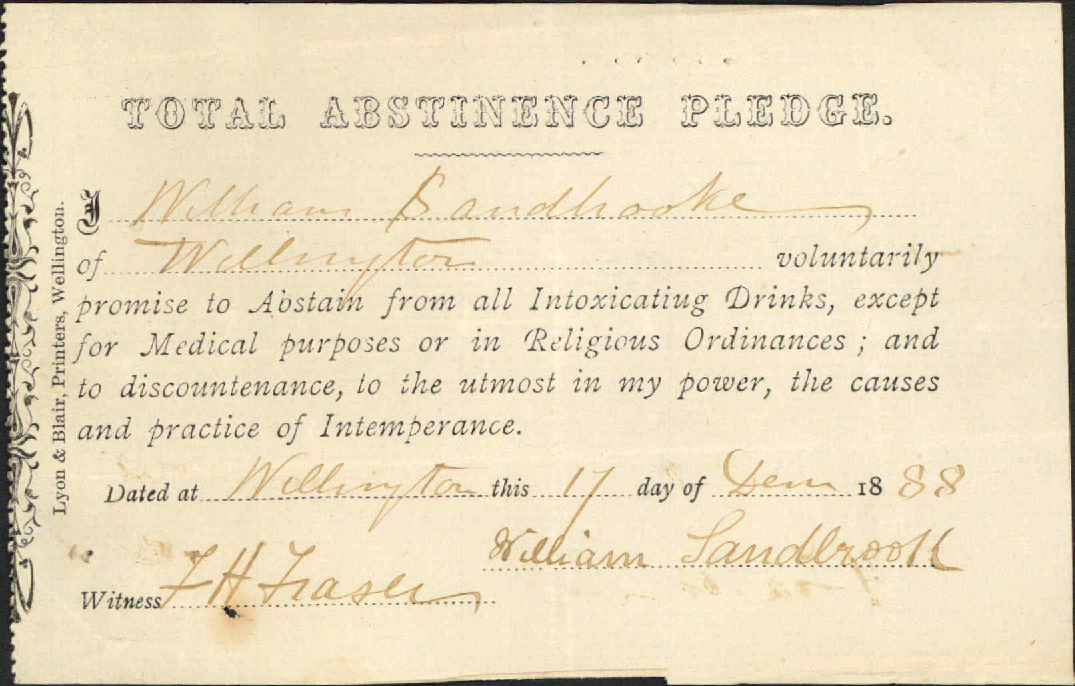 TOTAL ABSTINENCE PLEDGE.
I William Sandbrooke
of Wellington voluntarily
promise to Abstain from all Intoxicatiug Drinks, except
for Medical purposes or in Religious Ordinances; and
to discountenance, to the utmost in my power, the causes
and practice of Intemperance.
Dated at Wellington this 17 day of Decm 1888
William Sandbrook
Witness F H Fraser
Lyon & Blair, Printers, Wellington.